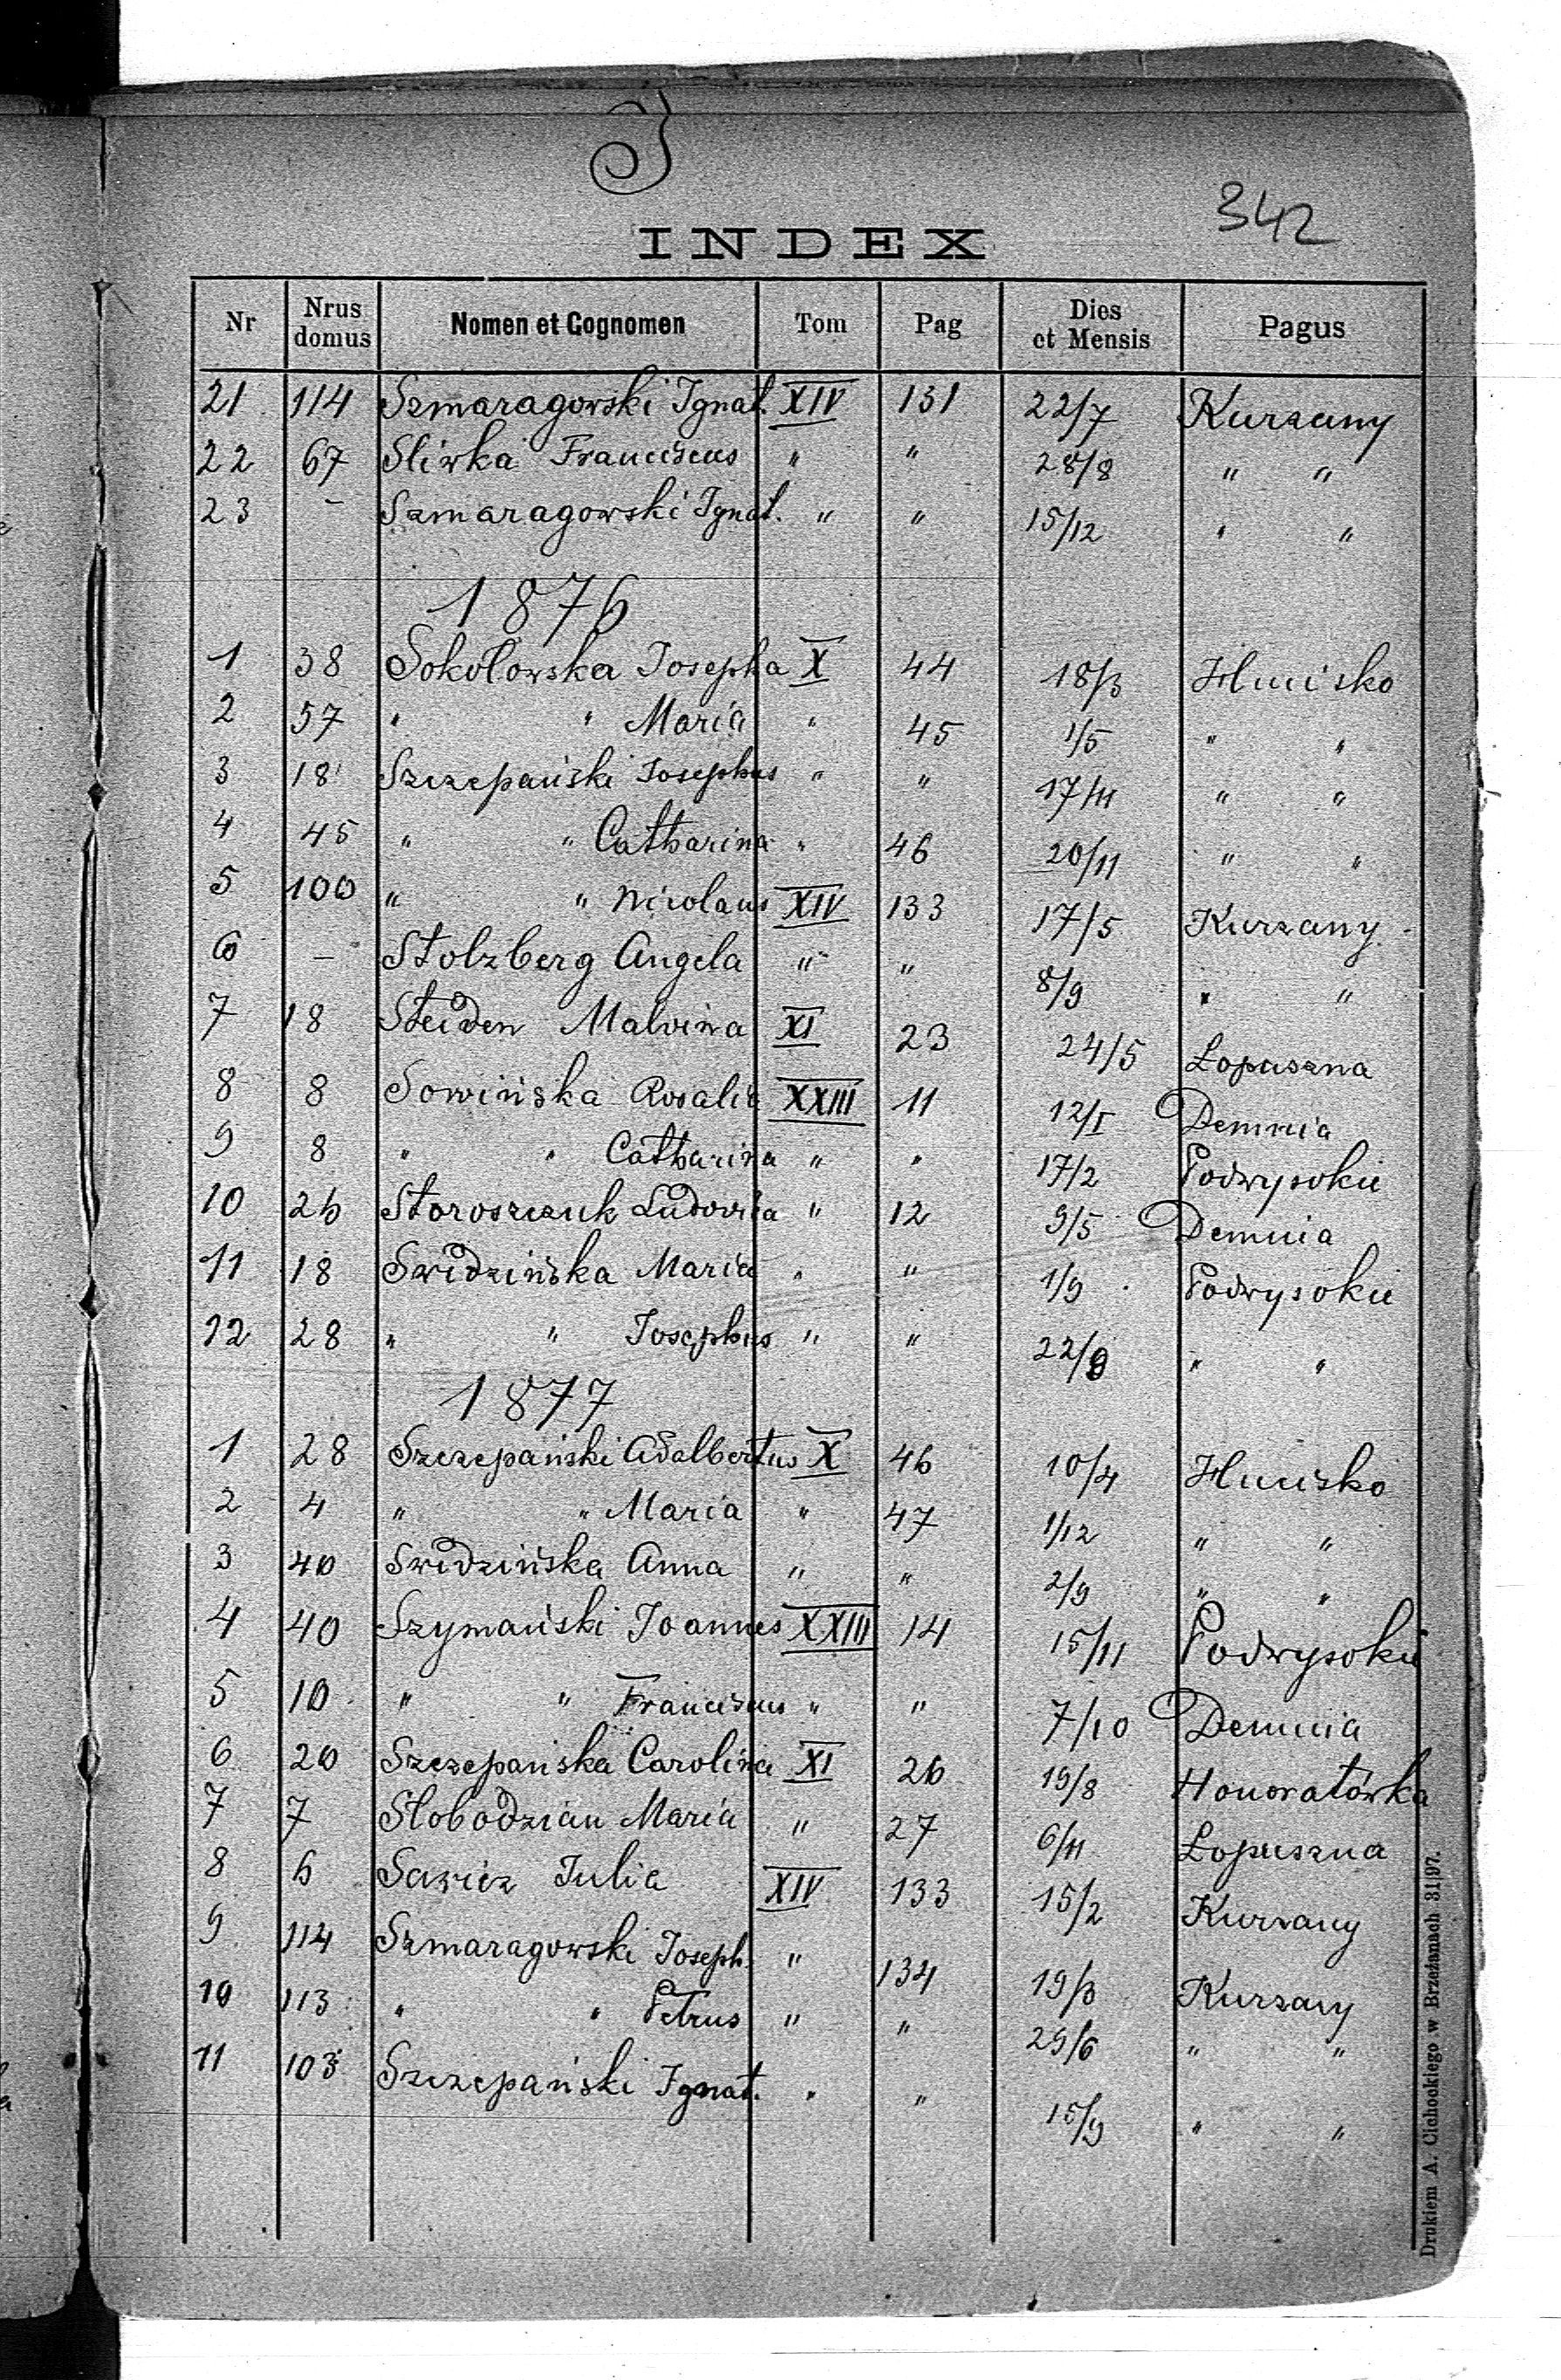 S
342
INDEX
Nr Nrus domus Nomen et Cognomen Tom Pag Dies et Mensis Pagus
21 114 Szmaragowski Ignat. XIV 131 22/7 Kurzany
22 67 Sliwka Franciscus " " 28/8 " "
23 – Szmaragowski Ignat. " " 15/12 " "
1876
1 38 Sokołowska Josepha X 44 18/3 Hucisko
2 57 " " Maria " 45 1/5 " "
3 18 Szczepański Josephus " " 17/11 " "
4 45 " " Catharina " 46 20/11 " "
5 100 " " Nicolaus XIV 133 17/5 Kurzany
6 – Stolzberg Angela " " 8/9 " "
7 18 Steiden Malvina XI 23 24/5 Lopuszna
8 8 Sowińska Rosalia XXIII 11 12/I Demnia
9 8 " " Catharina " " 17/2 Podwysokie
10 26 Storoszczuk Ludovica " 12 9/5 Demnia
11 18 Swidzińska Maria " " 1/9 Podwysokie
12 28 " " Josephus " " 22/9 " "
1877
1 28 Szczepański Adalbertus X 46 10/4 Hucisko
2 4 " " Maria " 47 1/12 " "
3 40 Swidzińska Anna " " 2/9 " "
4 40 Szymański Joannes XXIII 14 15/11 Podwysokie
5 10 " " Franciscus " " 7/10 Demnia
6 20 Szczepańska Carolina XI 26 19/8 Honoratówka
7 7 Słobodzian Maria " 27 6/11 Lopuszna
8 6 Sawicz Julia XIV 133 15/2 Kurzany
9 114 Szmaragowski Joseph. " 134 19/3 Kurzany
10 113 " " Petrus " " 29/6 " "
11 103 Szczepański Ignat. " " 15/9 " "
Drukiem A. Cichockiego w Brzeżanach 31|97.